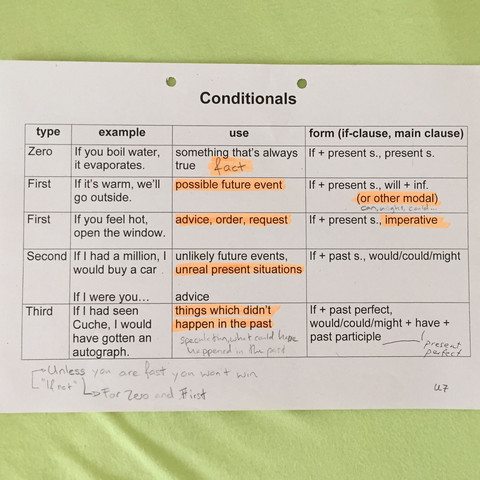 Conditionals
type example use form (if-clause, main clause)
Zero If you boil water, something that's always If + present s., present s.
it evaporates. true fact
First If it's warm, we'll possible future event If + present s., will + inf.
go outside. (or other modal)
can, might, could...
First If you feel hot, advice, order, request If + present s., imperative
open the window.
Second If I had a million, I unlikely future events, If + past s., would/could/might
would buy a car unreal present situations
If I were you... advice
Third If I had seen things which didn't If + past perfect,
Cuche, I would happen in the past would/could/might + have +
have gotten an speculation, what could have past participle
autograph. happened in the past present
perfect
Unless you are fast you won't win
"If not" For Zero and First
U7